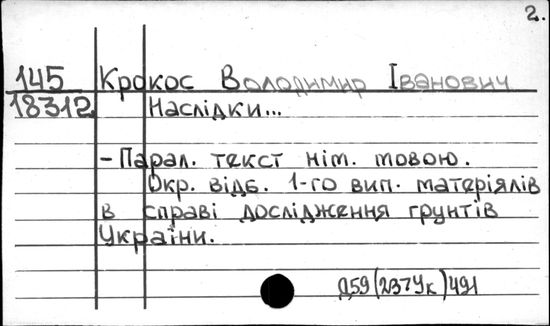 2.
145 Крокос Володимир Іванович
18312 Наслідки...
- Парал. текст нім. мовою.
Окр. відб. 1-го вип. матеріялів
в справі дослідження ґрунтів
України.
Д59(237Ук)491